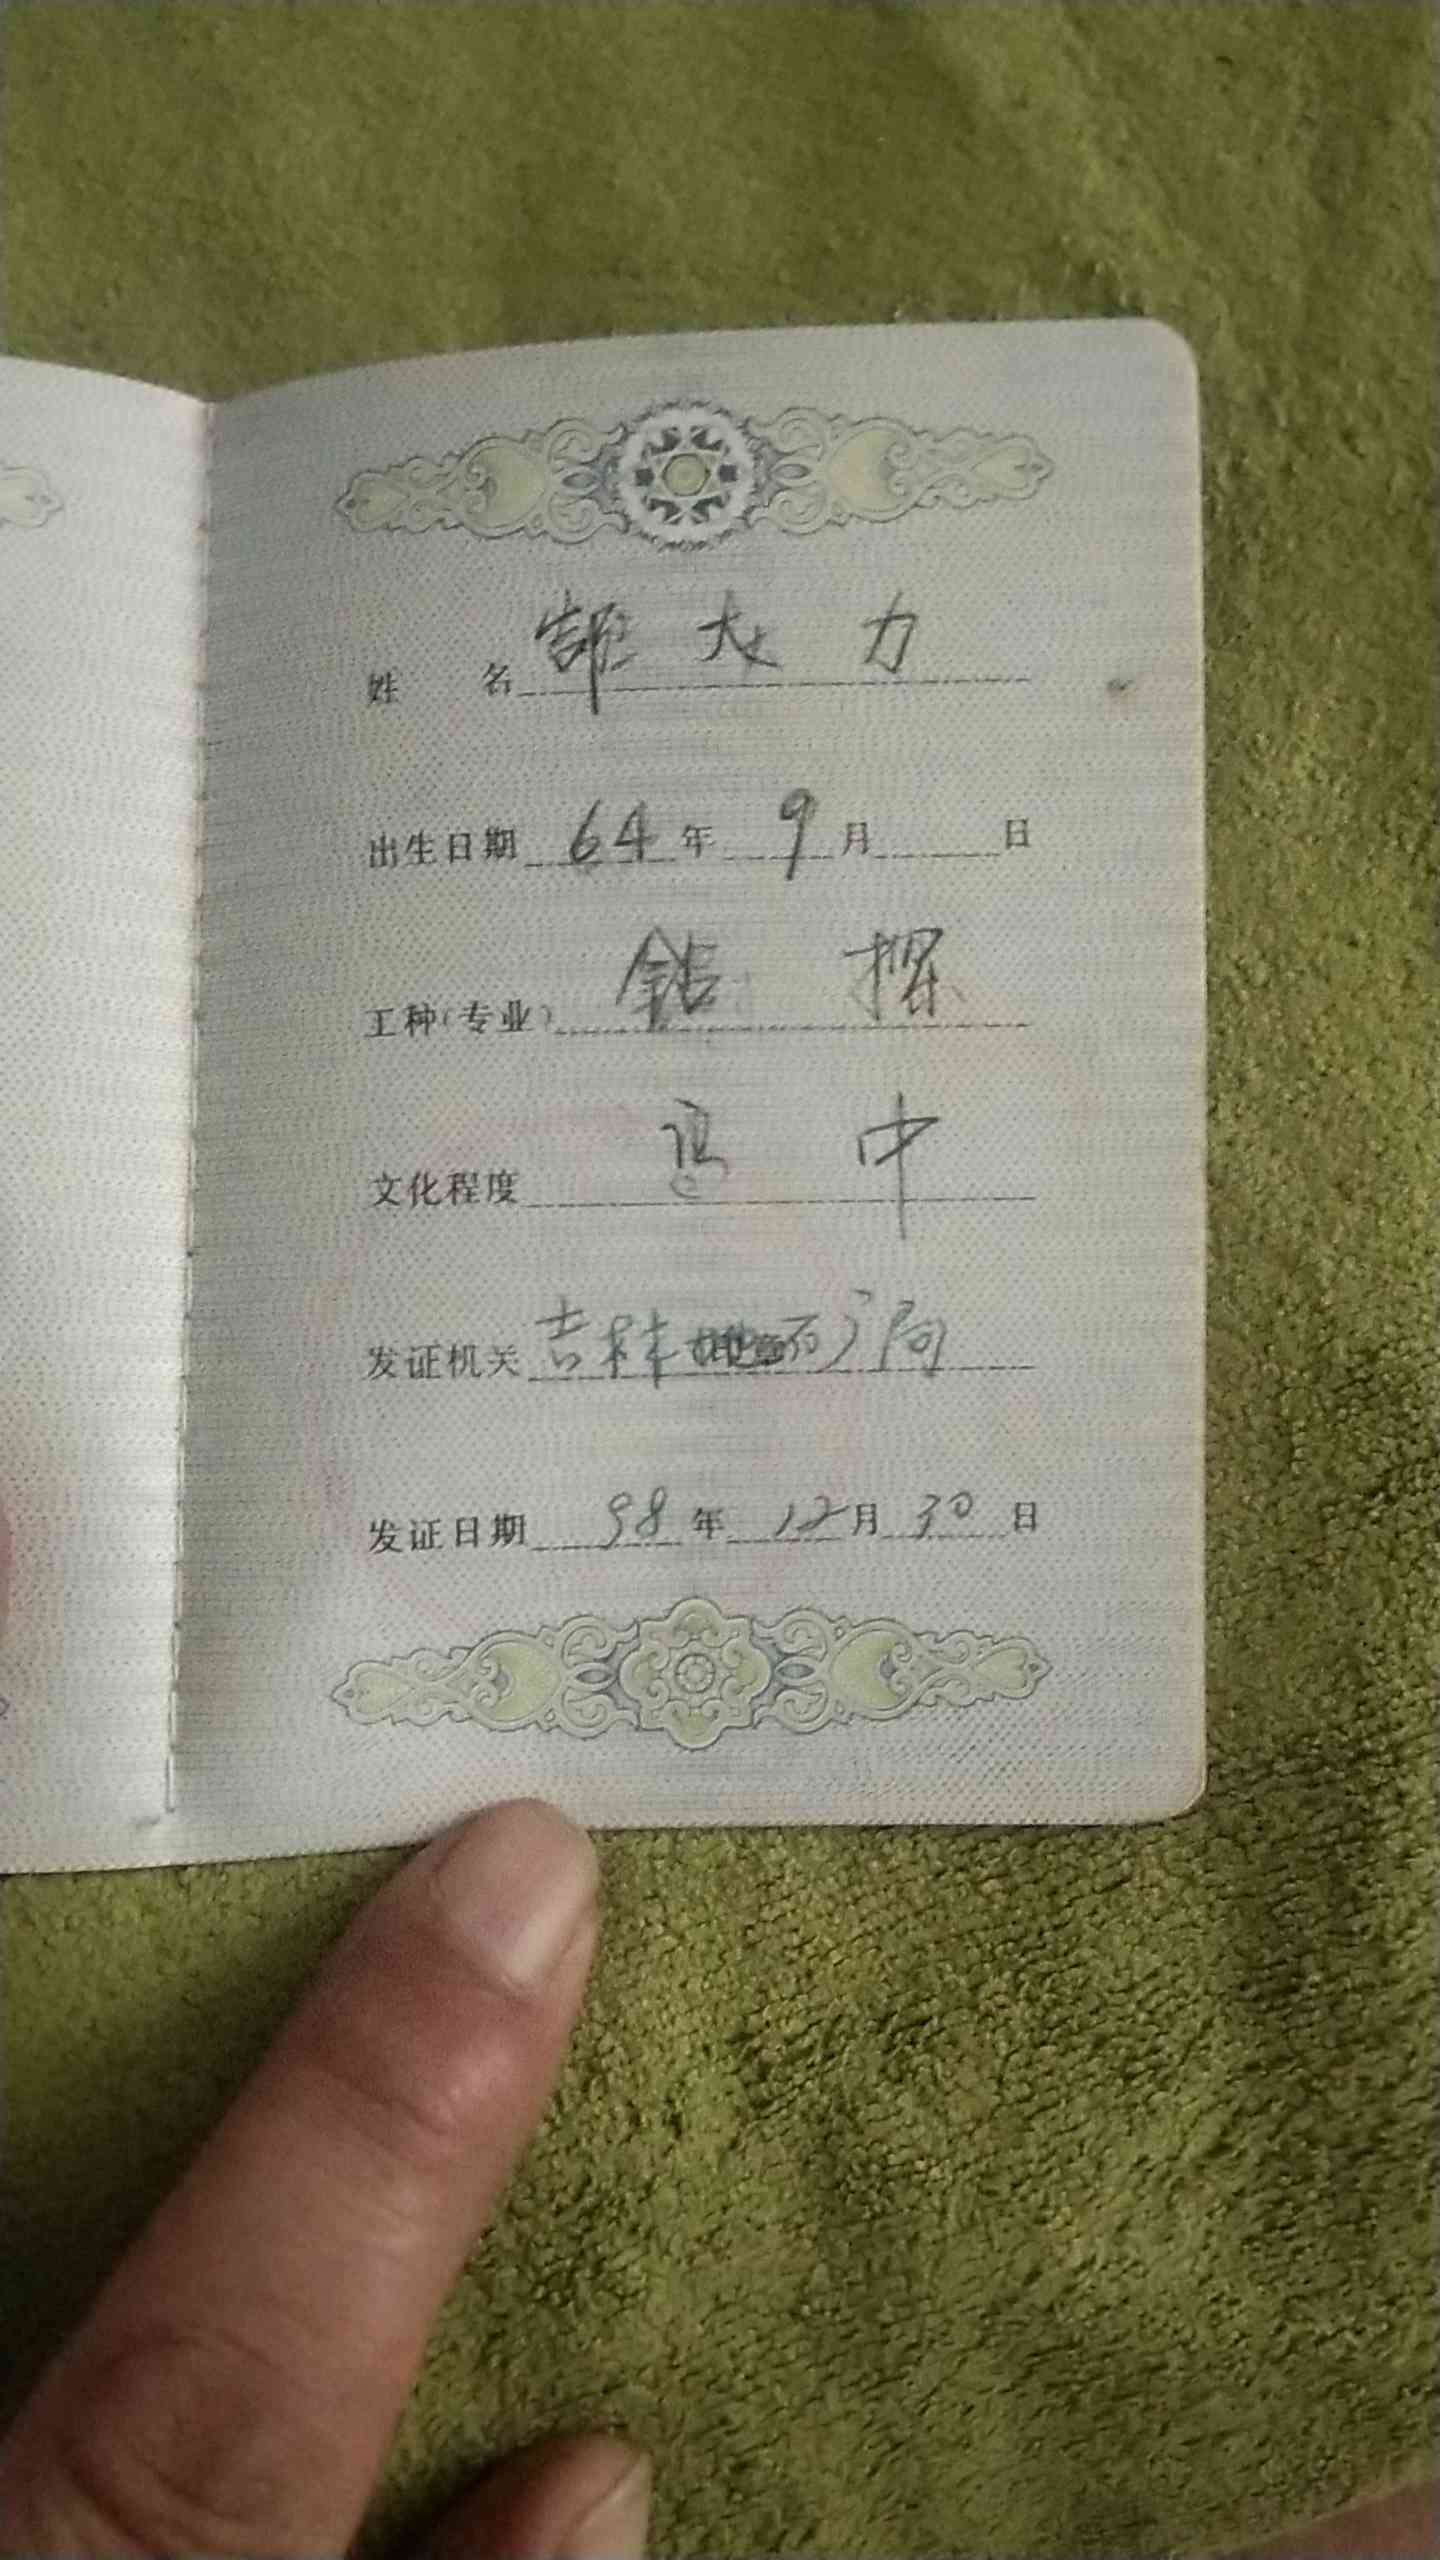 姓 名 大力
出生日期 64年 9月 日
工种(专业) 钻探
文化程度 高中
发证机关 吉林地矿局
发证日期 98年 12月 30日